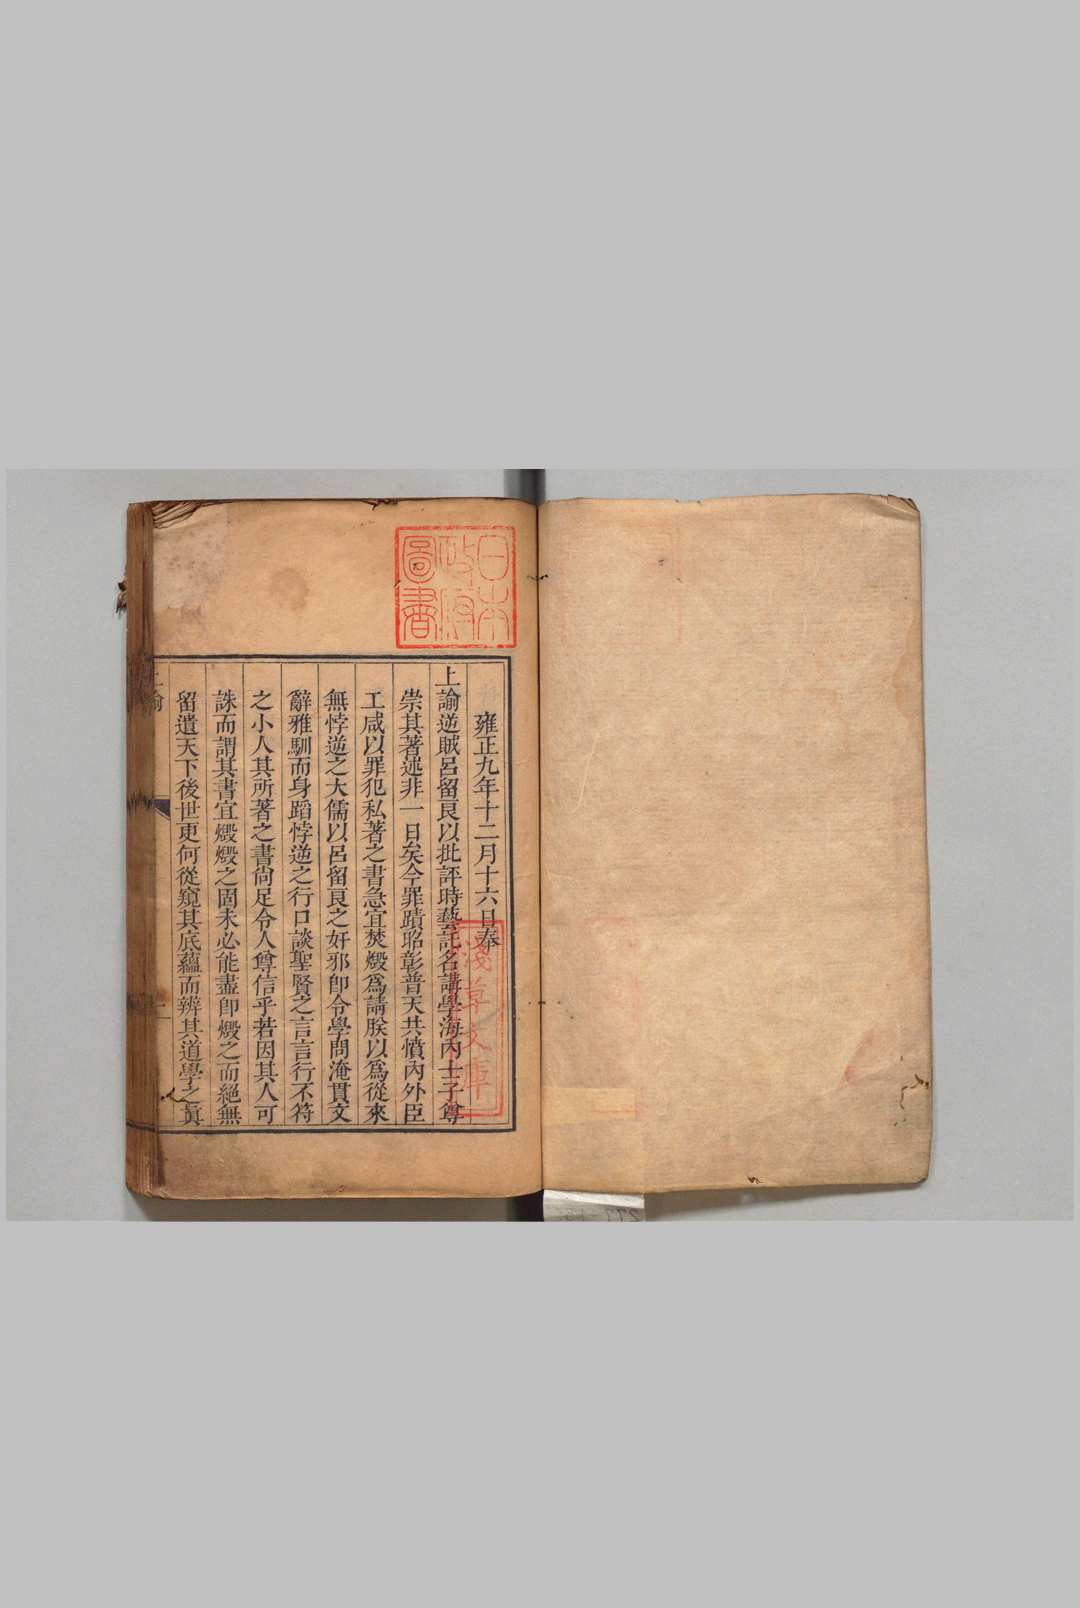 日本
政府
圖書
雍正九年十二月十六日奉
上諭逆賊呂留良以批評時藝託名講學海內士子尊
崇其著述非一日矣今罪蹟昭彰普天共憤內外臣
工咸以罪犯私著之書急宜焚燬為請朕以為從來
無悖逆之大儒以呂留良之奸邪卽令學問淹貫文
辭雅馴而身蹈悖逆之行口談聖賢之言言行不符
之小人其所著之書尙足令人尊信乎若因其人可
誅而謂其書宜燬燬之固未必能盡卽燬之而絕無
留遺天下後世更何從窺其底蘊而辨其道學之眞
上諭
一
淺草文庫